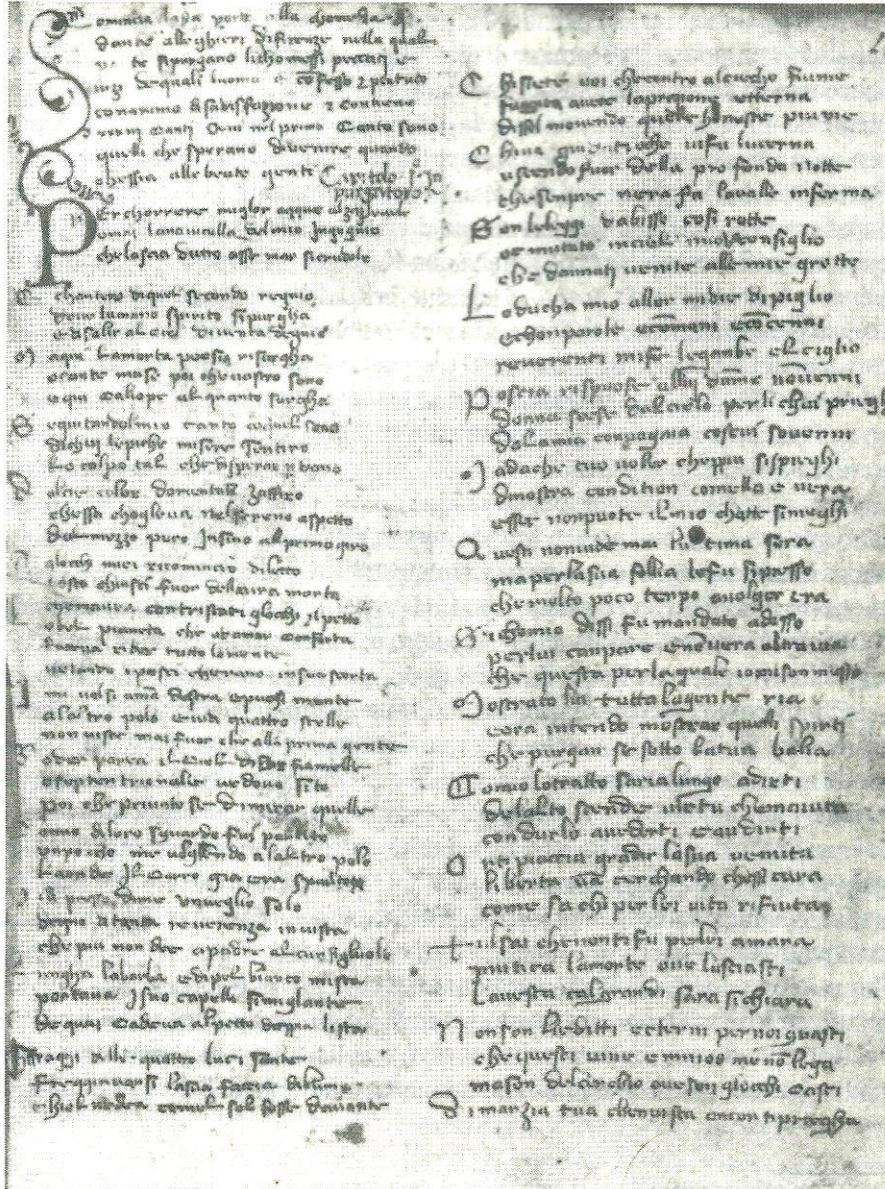 omincia la pa parte della chomedia d
dante alleghieri di firenze nella quale
te si purgano li chomessi peccati e
vizi de quali luomo e confesso et pentuto
con animo di sadisfazione et contiene
canti Qui nel primo Canto sono
quelli che sperano di venire quando
chessia alle beate genti Capitolo po In
purgatoro
Per chorrere miglor acque alza le vele
omai la navicella del mio ingegno
che lascia dietro asse mar si crudele
E chantero di quel secondo regno
dove lumano spirito si purgha
e di salire al cielo diventa degno
M a qui la morta poesia risurgha
o sante muse poi che vostro sono
e qui Caliope al quanto surgha
S eguitando il mio canto con quel suono
di chui le piche misere sentiro
lo colpo tal che disperar perdono
D olce color doriental zaffiro
chessa choglieva nel sereno aspetto
dal mezzo puro Insino al primo giro
A gliocchi miei ricomincio diletto
tosto chiusci fuor dellaura morta
che mavea contristati gliocchi el petto
L o bel pianeta che ad amar conforta
faceva rider tutto loriente
velando i pesci cherano in sua scorta
I mi volsi a man destra e puosi mente
alaltro polo e vidi quattro stelle
non viste mai fuor che alla prima gente
G oder pareva il Ciel di lor fiamelle
o septentrionale vedovo sito
poi che privato se di mirar quelle
chomio da loro sguardo fui partito
un poco me volgendo a laltro polo
la onde Il Carro gia era sparito
vi presso di me un veglio solo
degno di tanta reverenza in vista
che piu non dee a padre alcun figliuolo
lungha la barba e di pel bianco mista
portava i suo capelli simiglante
de quai cadeva al petto doppia lista
li raggi delle quattro luci sante
fregiavan si la sua faccia di lume
chiol vedea come l sol fosse davante
C hi siete voi che contro al ciecho fiume
fuggita avete la pregione etterna
dissel movendo quelle honeste piume
C hi va guidati o che vi fu lucerna
uscendo fuor della profonda notte
che sempre nera fa la valle inferma
S on le leggi dabisso cosi rotte
o e mutato in ciel nuovo consiglio
che dannati venite alle mie grotte
L o ducha mio allor mi die di piglio
e chon parole e con mani e con cenni
reverenti mi fe le gambe el ciglio
P oscia rispuose allui da me non venni
donna scese dal cielo per li chui prieghi
dalla mia conpagnia costui sovenni
M a da che tuo voller che ppiu si spieghi
di nostra condition comella e vera
esser non puote il mio chatte si nieghi
Q uesti non vide mai lultima sera
ma per la sua follia le fu si presso
che molto poco tenpo a volger era
S i chomio dissi fu mandato ad esso
per lui canpare e non vera altra via
che questa per la quale io mi son messo
M ostrato ho lui tutta la gente ria
e ora intendo mostrar quelli spirti
che purgan se sotto la tua balia
C omio lo tratto saria lungo a dirti
de lalto scende virtu che maiuta
condurlo a vederti e a udirti
O r ti piaccia gradir la sua venuta
liberta va cerchando chessi cara
come sa chi per lei vita rifiuta
t ul sai che non ti fu per lei amara
in utica la morte ove lasciasti
La vesta cal gran di sara si chiara
N on son li editti ecterni per noi guasti
che questi vive e minos me non lega
ma son del cerchio ove son gliocchi casti
D i marzia tua che n vista ancor ti priegha